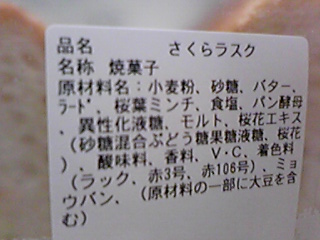 品名 さくらラスク
名称 焼菓子
原材料名：小麦粉、砂糖、バター、
ﾗｰﾄﾞ、桜葉ミンチ、食塩、パン酵母
、異性化液糖、モルト、桜花エキス
（砂糖混合ぶどう糖果糖液糖、桜花
）、酸味料、香料、V・C、着色料
（ラック、赤3号、赤106号）、ミョ
ウバン、（原材料の一部に大豆を含
む）